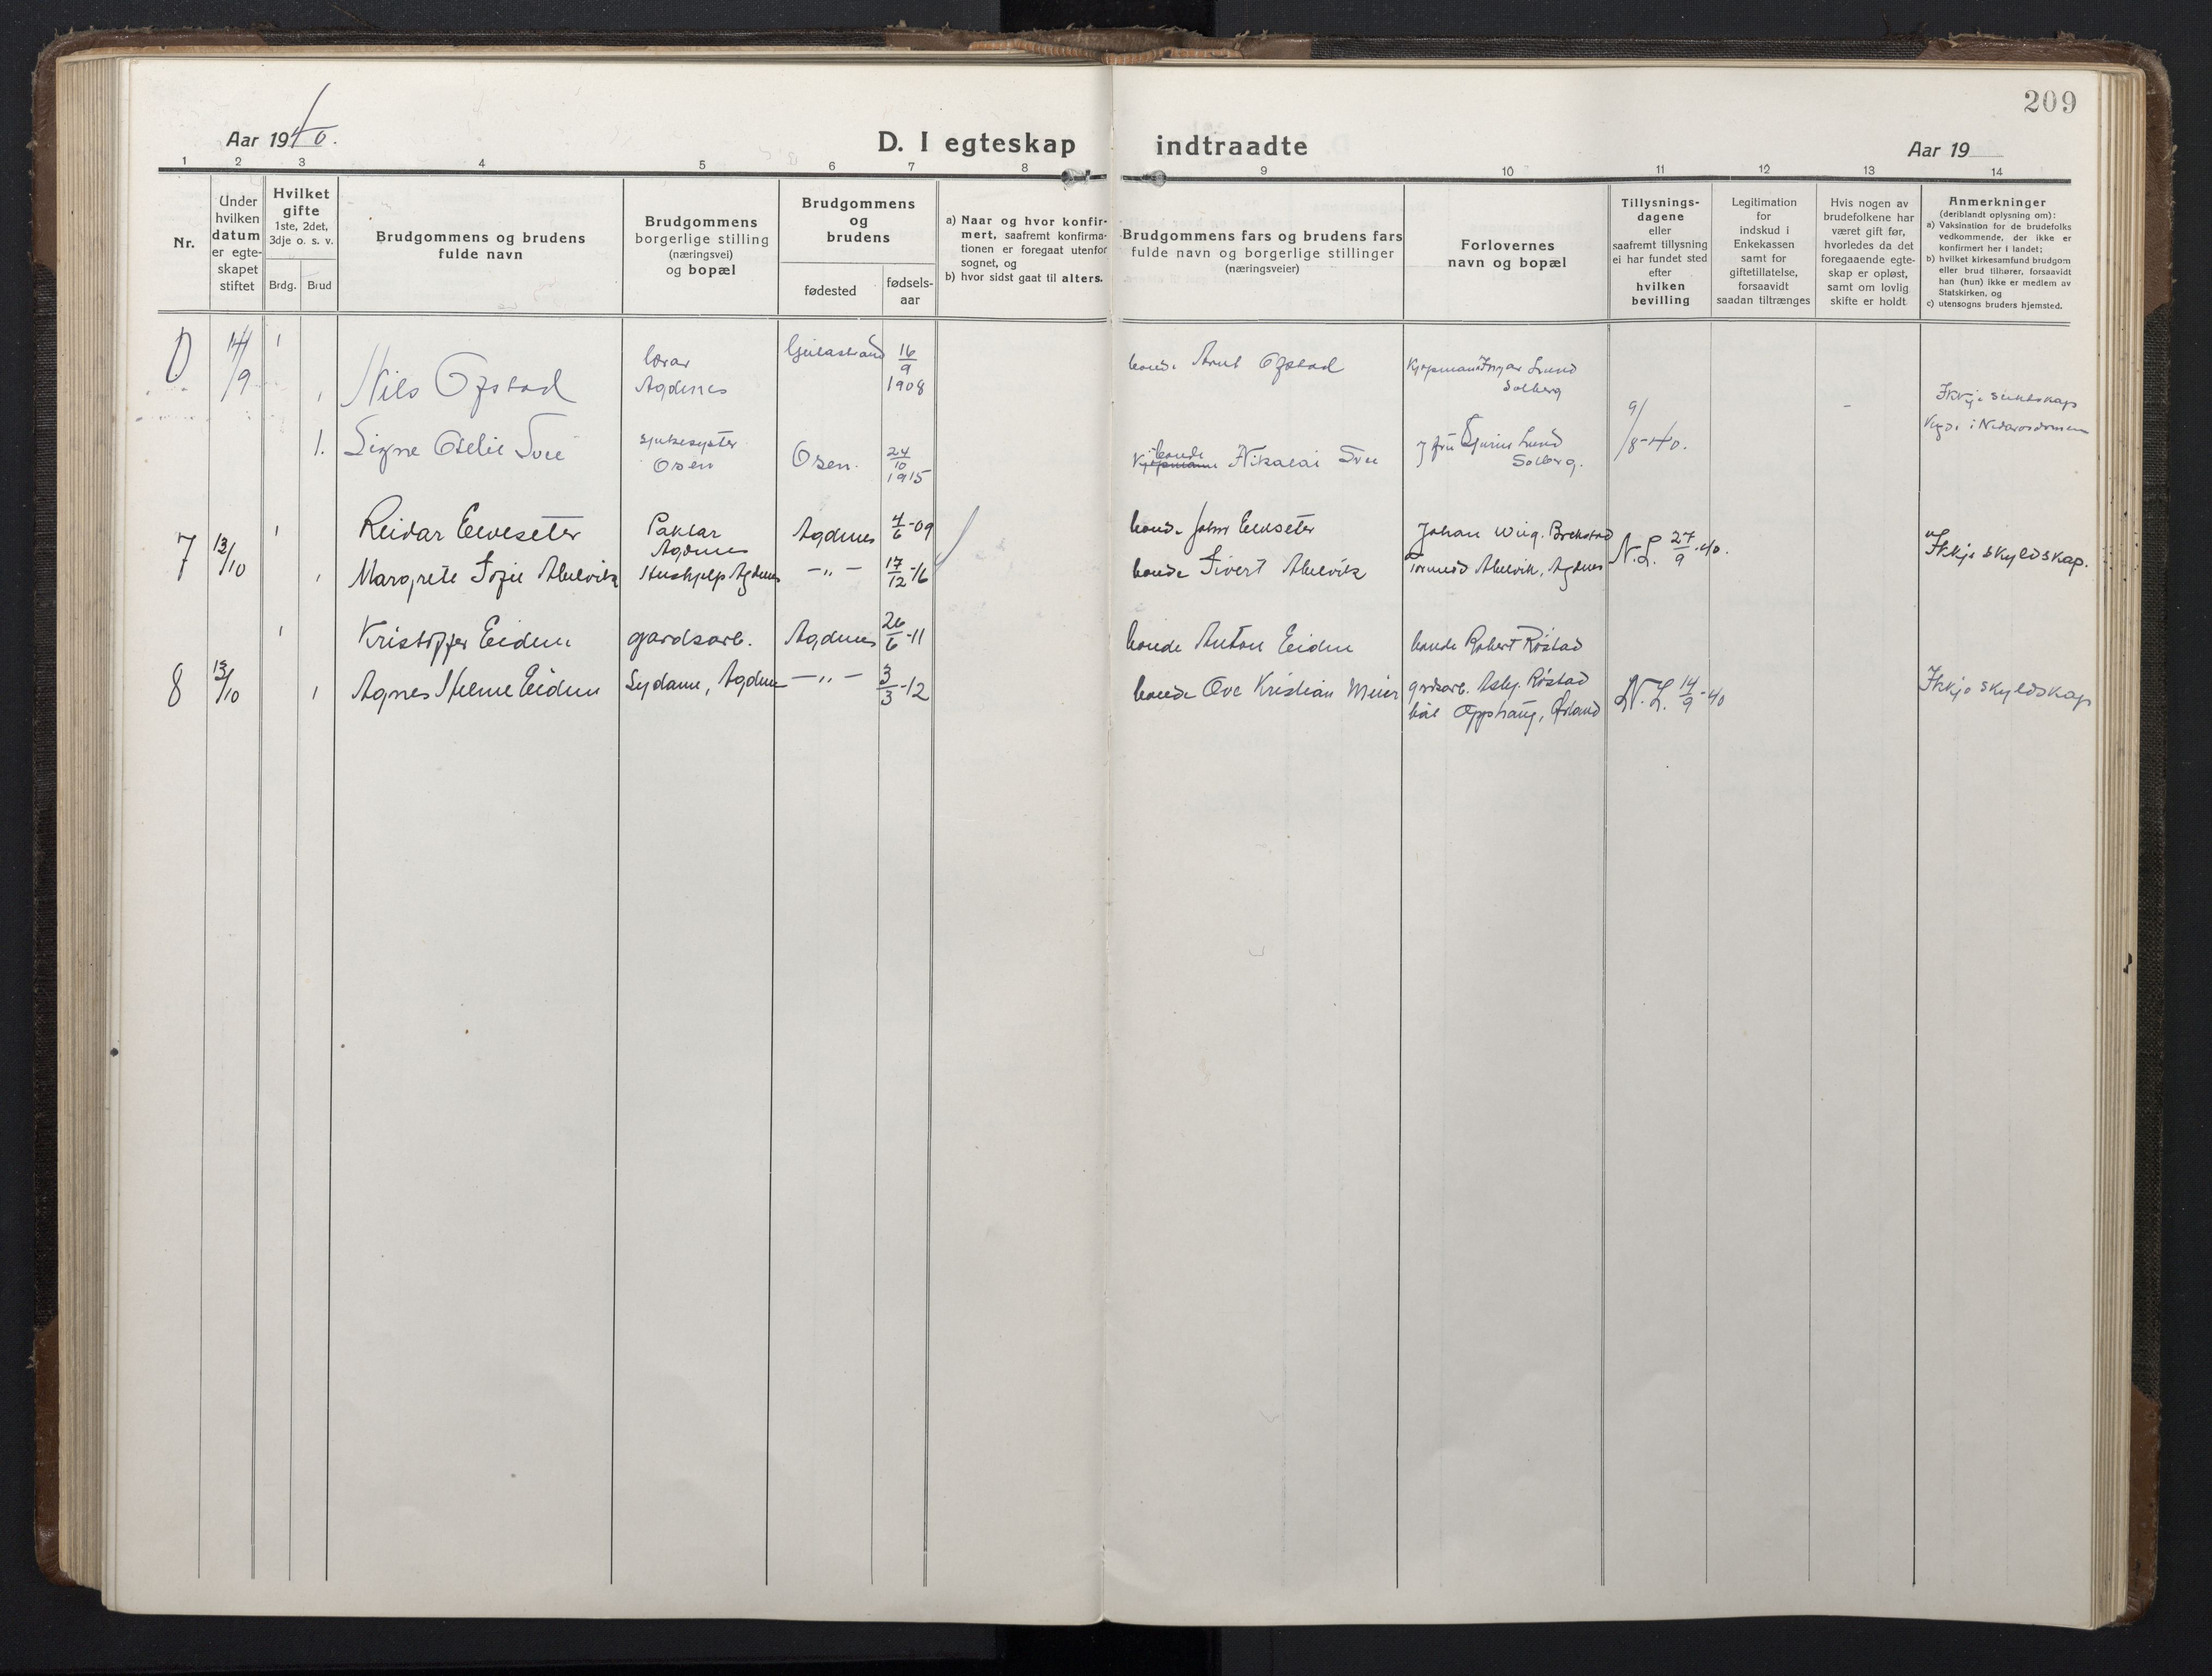 209
Aar 1940.
D. I egteskap indtraadte
Aar 19
1 2 3 4 5 6 7 8 9 10 11 12 13 14
Nr.
Under
hvilken
datum
er egte-
skapet
stiftet
Hvilket
gifte
1ste, 2det,
3dje o. s. v.
Brdg. Brud
Brudgommens og brudens
fulde navn
Brudgommens
borgerlige stilling
(næringsvei)
og bopæl
Brudgommens
og
brudens
fødested
fødsels-
aar
a) Naar og hvor konfir-
mert, saafremt konfirma-
tionen er foregaat utenfor
sognet, og
b) hvor sidst gaat til alters.
Brudgommens fars og brudens fars
fulde navn og borgerlige stillinger
(næringsveier)
Forlovernes
navn og bopæl
Tillysnings-
dagene
eller
saafremt tillysning
ei har fundet sted
efter
hvilken
bevilling
Legitimation
for
indskud i
Enkekassen
samt for
giftetillatelse,
forsaavidt
saadan tiltrænges
Hvis nogen av
brudefolkene har
været gift før,
hvorledes da det
foregaaende egte-
skap er opløst,
samt om lovlig
skifte er holdt
Anmerkninger
(deriblandt oplysning om):
a) Vaksination for de brudefolks
vedkommende, der ikke er
konfirmert her i landet;
b) hvilket kirkesamfund brudgom
eller brud tilhører, forsaavidt
han (hun) ikke er medlem av
Statskirken, og
c) utensogns bruders hjemsted.
0 14/9 1 Nils Ofstad lærar Agdenes 16/9 1908 bonde Arnt Ofstad Kjøpmann Ingar Lund Solberg
9/8-40. - Ikkje
Vigde i Nidarosdomen
1. Signe Otelie sjukesyster Osen Osen. 24/10 1915 bonde Kjøpmann Nikolai Lund Solberg.
7 13/10 1 Reidar Elveseter Paktar Agdenes Agdenes 4/6-09 bonde John Elveseter Johan Wiig. Brekstad N.L. 27/9-40. Ikkje skyldskap.
1 Margrete Sofie Alselvik Hushjelp Agdenes -"- 17/12-16 bonde Sivert Agdenes
1 Kristoffer Eidem gardsarb. Agdenes 26/6-11 bonde Anton Eidem bonde Robert Røstad
8 13/10 1 Agnes Eidem Sydame, Agdenes -"- 3/3-12 bonde Ove Kristian Meier gardsarb. Asbj. Røstad N.L. 14/9-40 Ikkje skyldskap
Opphaug, Ørland